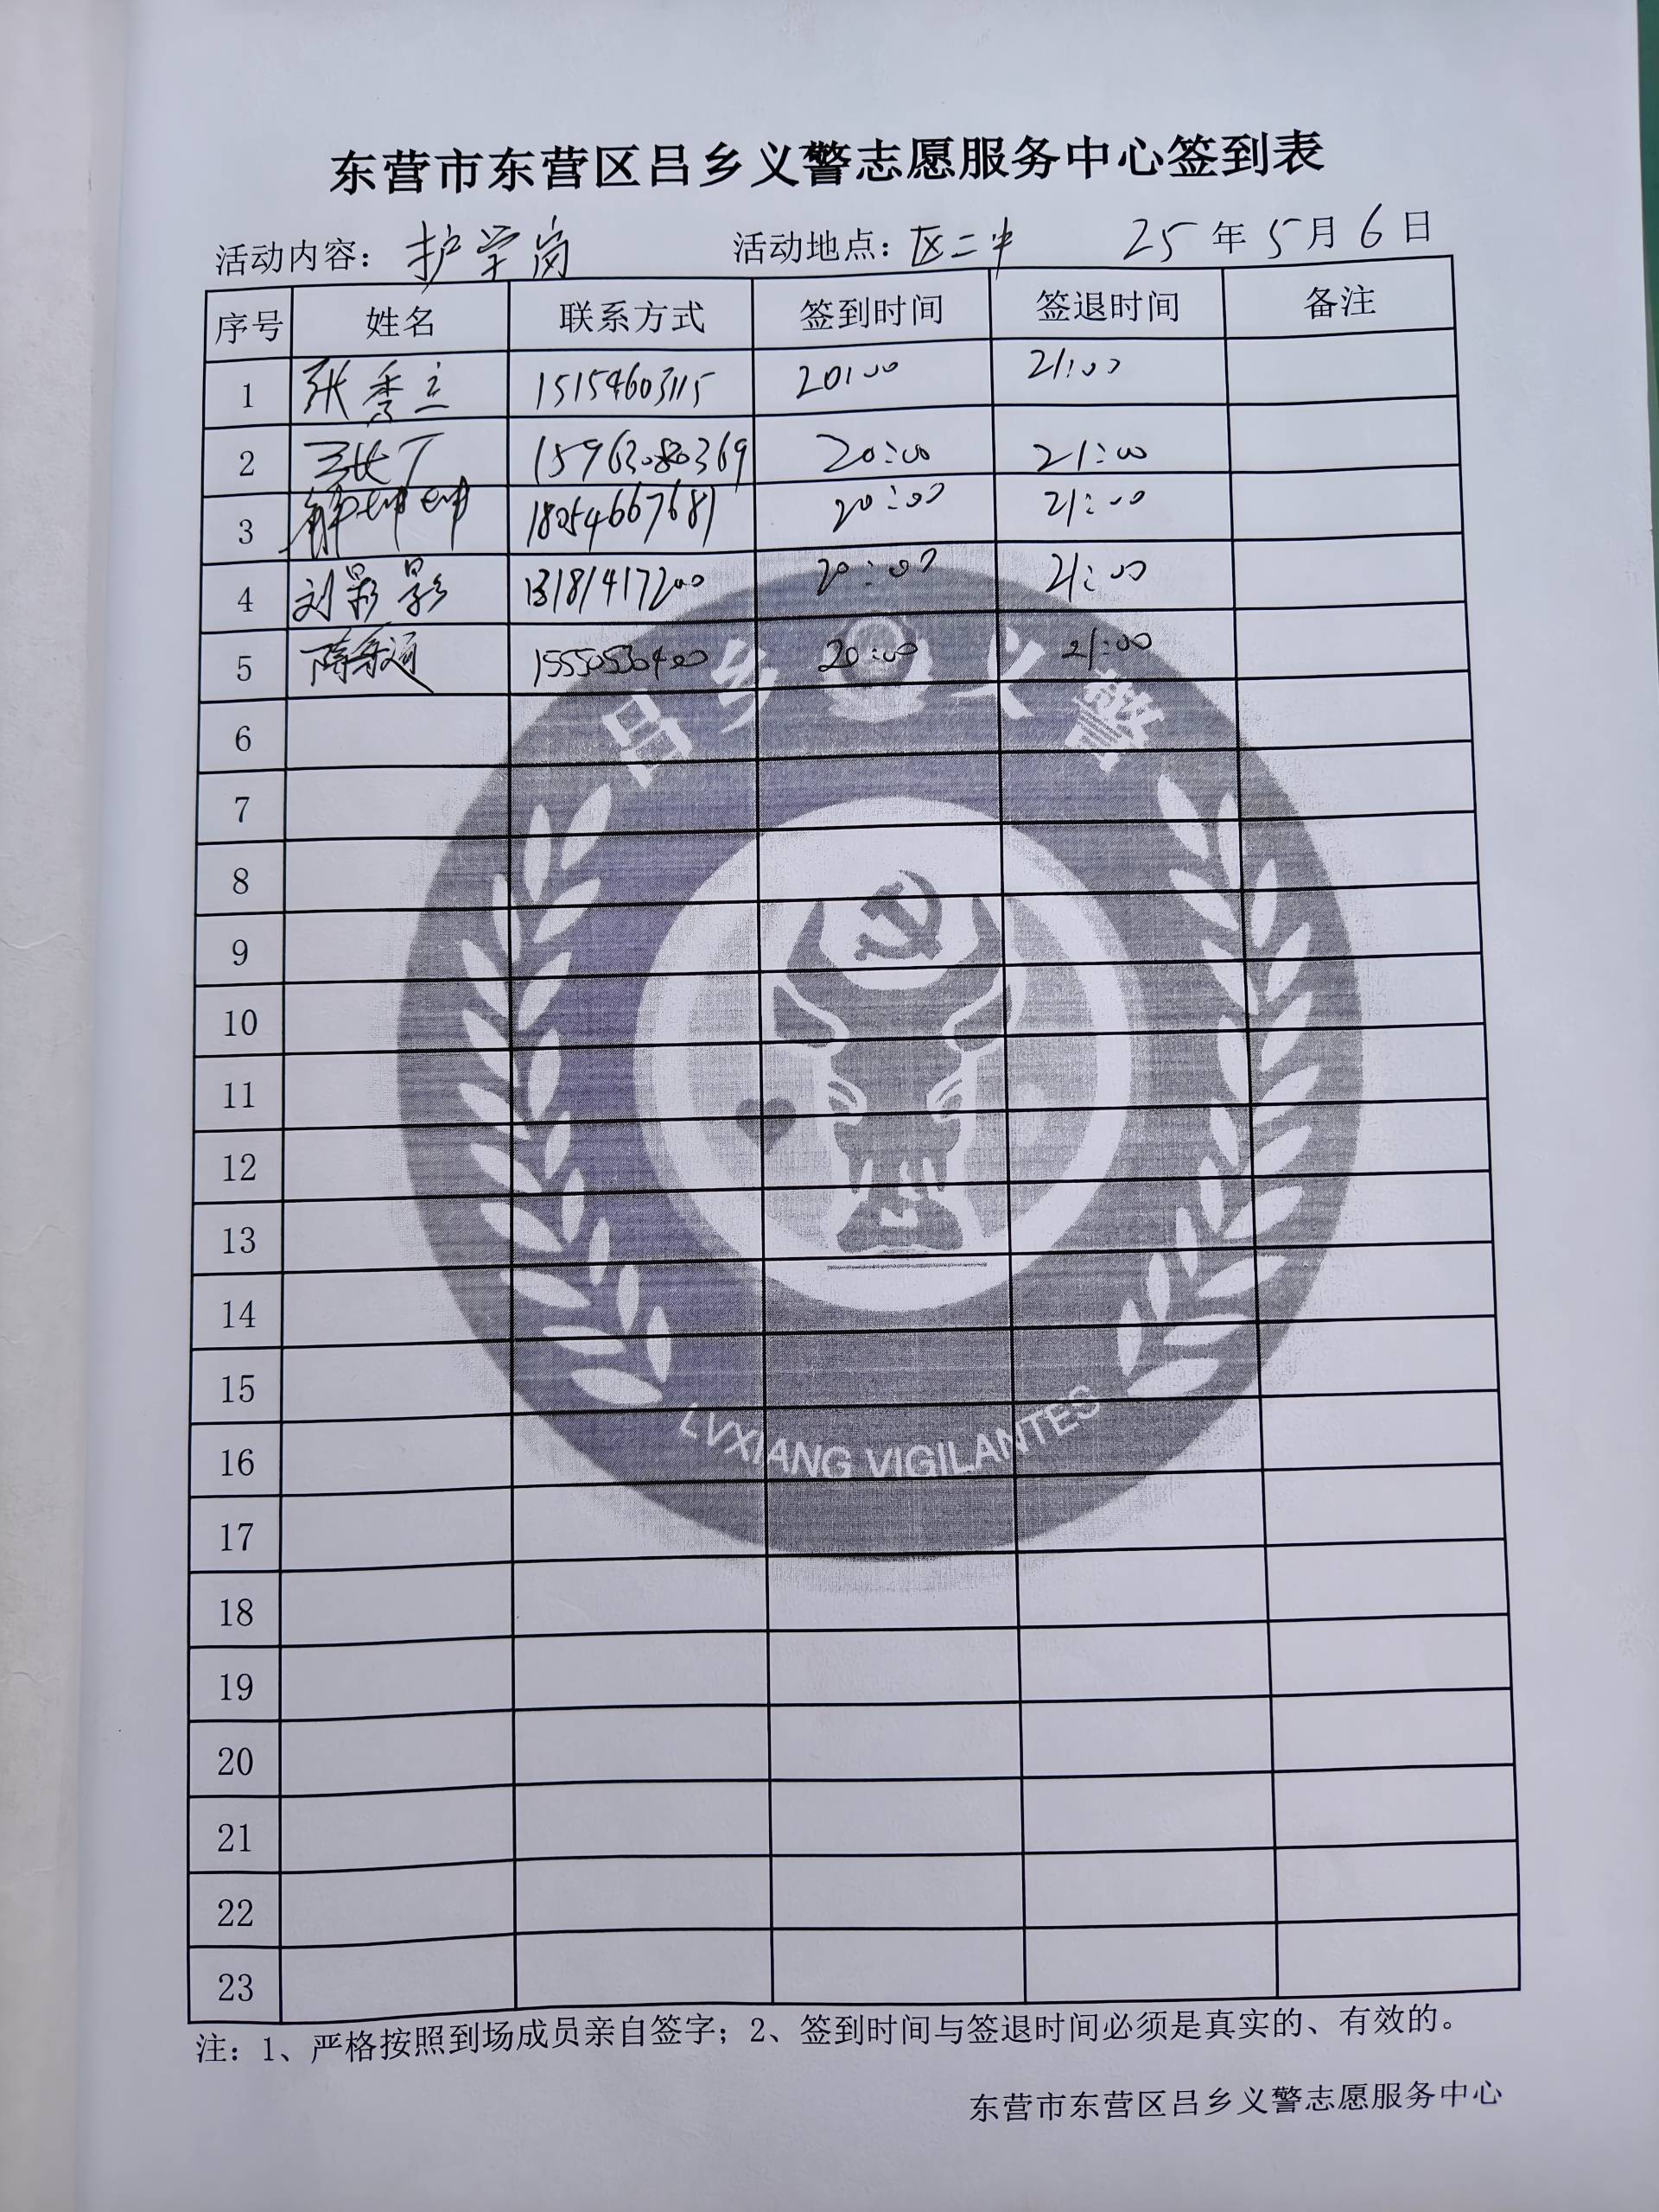 东营市东营区吕乡义警志愿服务中心签到表
活动内容：护学岗 活动地点：区二中 25年5月6日
序号 姓名 联系方式 签到时间 签退时间 备注
1 张秀兰 15154603115 20:00 21:00
2 15963080369 20:00 21:00
3 18254667681 20:00 21:00
4 刘影影 13181417200 20:00 21:00
5 15550530400 20:00 21:00
6
7
8
9
10
11
12
13
14
15
16
17
18
19
20
21
22
23
吕乡义警
LVXIANG VIGILANTES
注：1、严格按照到场成员亲自签字；2、签到时间与签退时间必须是真实的、有效的。
东营市东营区吕乡义警志愿服务中心